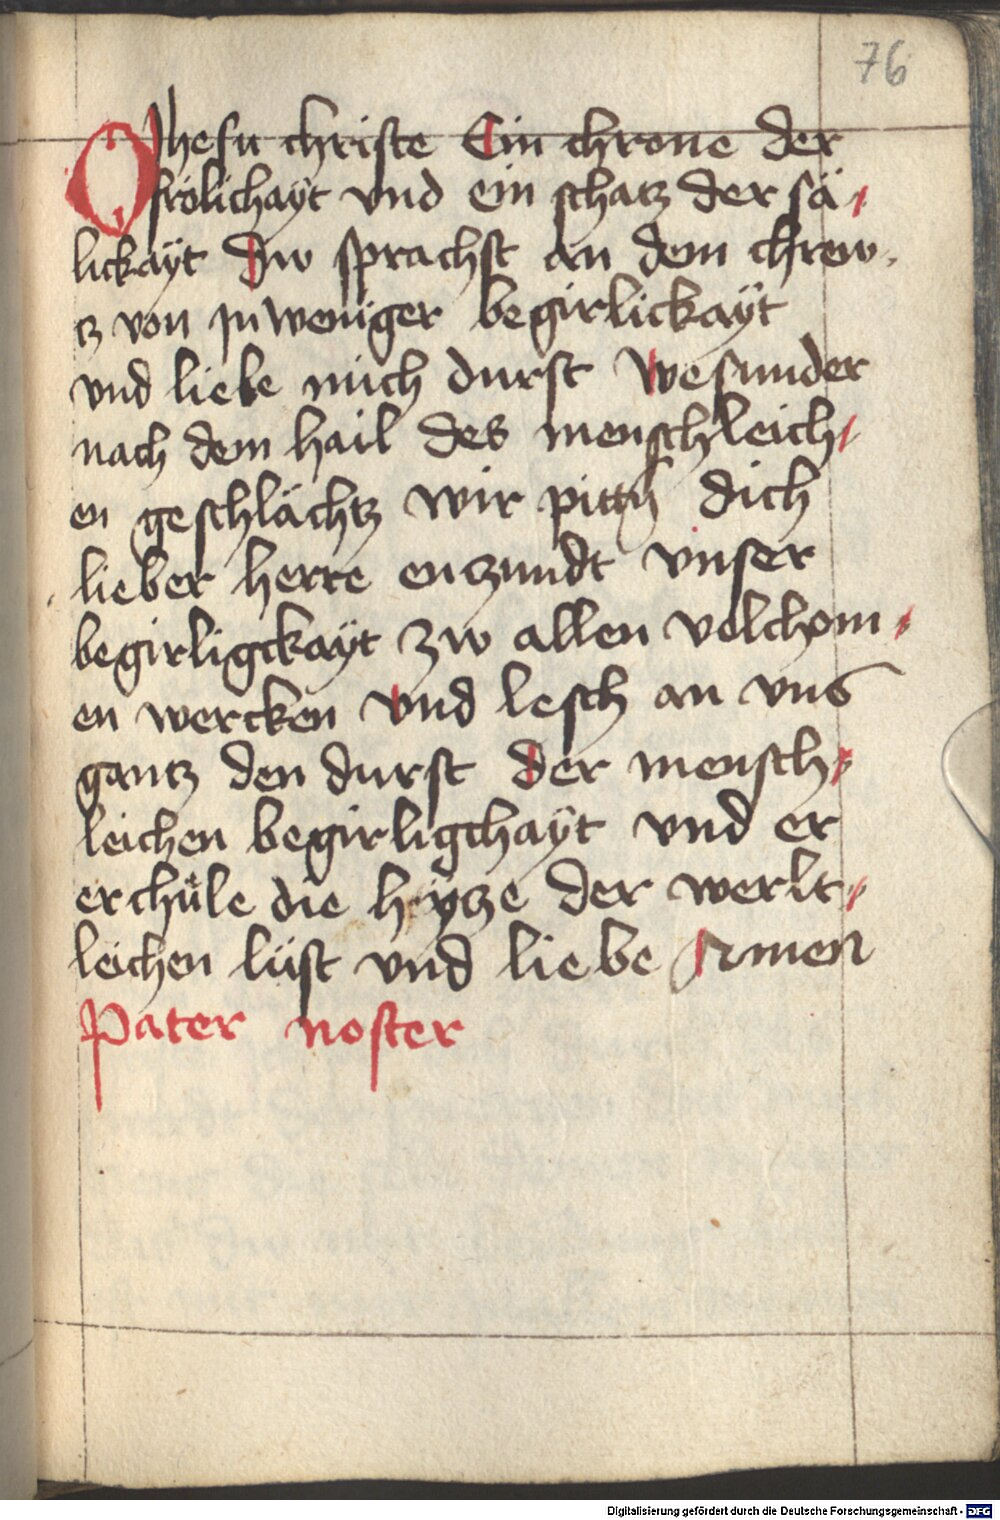 76
O Jhesu christe Ein chrone der
frölichaÿt vnd ein schatz der sä
lickaÿt Dw sprachst an dem chrew
cz von jnweniger begirlickaÿt
vnd liebe mich durst Wesunder
nach dem hail des menschleich
en geschlächtz wir pittn dich
lieber herre enczundt vnser
begirligckaÿt zw allen volchom
en wercken Vnd lesch an vns
gantz den durst der mensch
leichen begirligchaÿt vnd er
erchüle die hÿcze der werlt
leichen lüst vnd liebe Amen
Pater noster
Digitalisierung gefördert durch die Deutsche Forschungsgemeinschaft - DFG